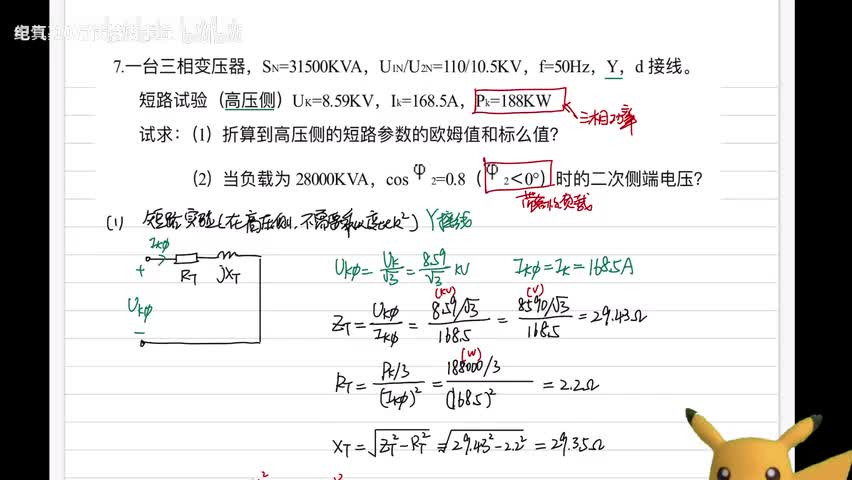 7.一台三相变压器，SN=31500KVA，U1N/U2N=110/10.5KV，f=50Hz，Y，d 接线。
短路试验（高压侧）UK=8.59KV，Ik=168.5A，Pk=188KW
三相功率
试求：（1）折算到高压侧的短路参数的欧姆值和标么值？
（2）当负载为 28000KVA，cos φ 2=0.8（φ 2＜0°）时的二次侧端电压？
带容性负载
(1) 短路实验(在高压侧,不需要乘以变比k²) Y接线
IKφ
RT jXT
+
UKφ
−
UKφ = UK/√3 = 8.59/√3 KV IKφ = IK = 168.5A
ZT = UKφ/IKφ = 8.59/√3 (KV) / 168.5 = 8590/√3 (V) / 168.5 = 29.43Ω
RT = PK/3 / (IKφ)² = 188000/3 (W) / (168.5)² = 2.2Ω
XT = √ZT²−RT² = √29.43²−2.2² = 29.35Ω